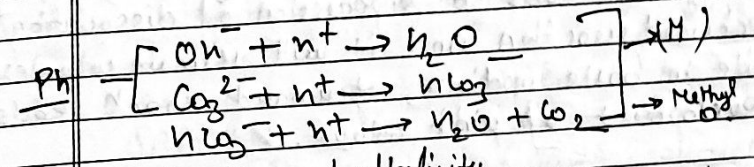 OH⁻ + H⁺ → H₂O → (M)
Ph CO₃²⁻ + H⁺ → HCO₃⁻
HCO₃⁻ + H⁺ → H₂O + CO₂ → Methyl O